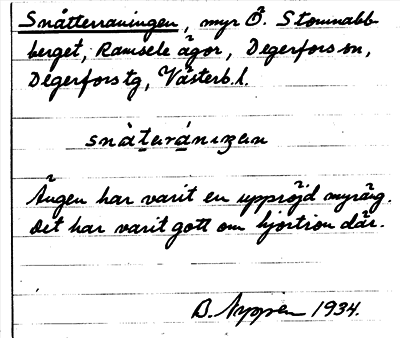 Snåtterraningen, myr Ö. Stominabb-
berget, Ramsele ägor, Degerfors sn,
Degerfors tg, Västerb. l.
snàtaránıŋan
Ängen har varit en uppröjd myräng.
Det har varit gott om hjortron där.
B. 1934.